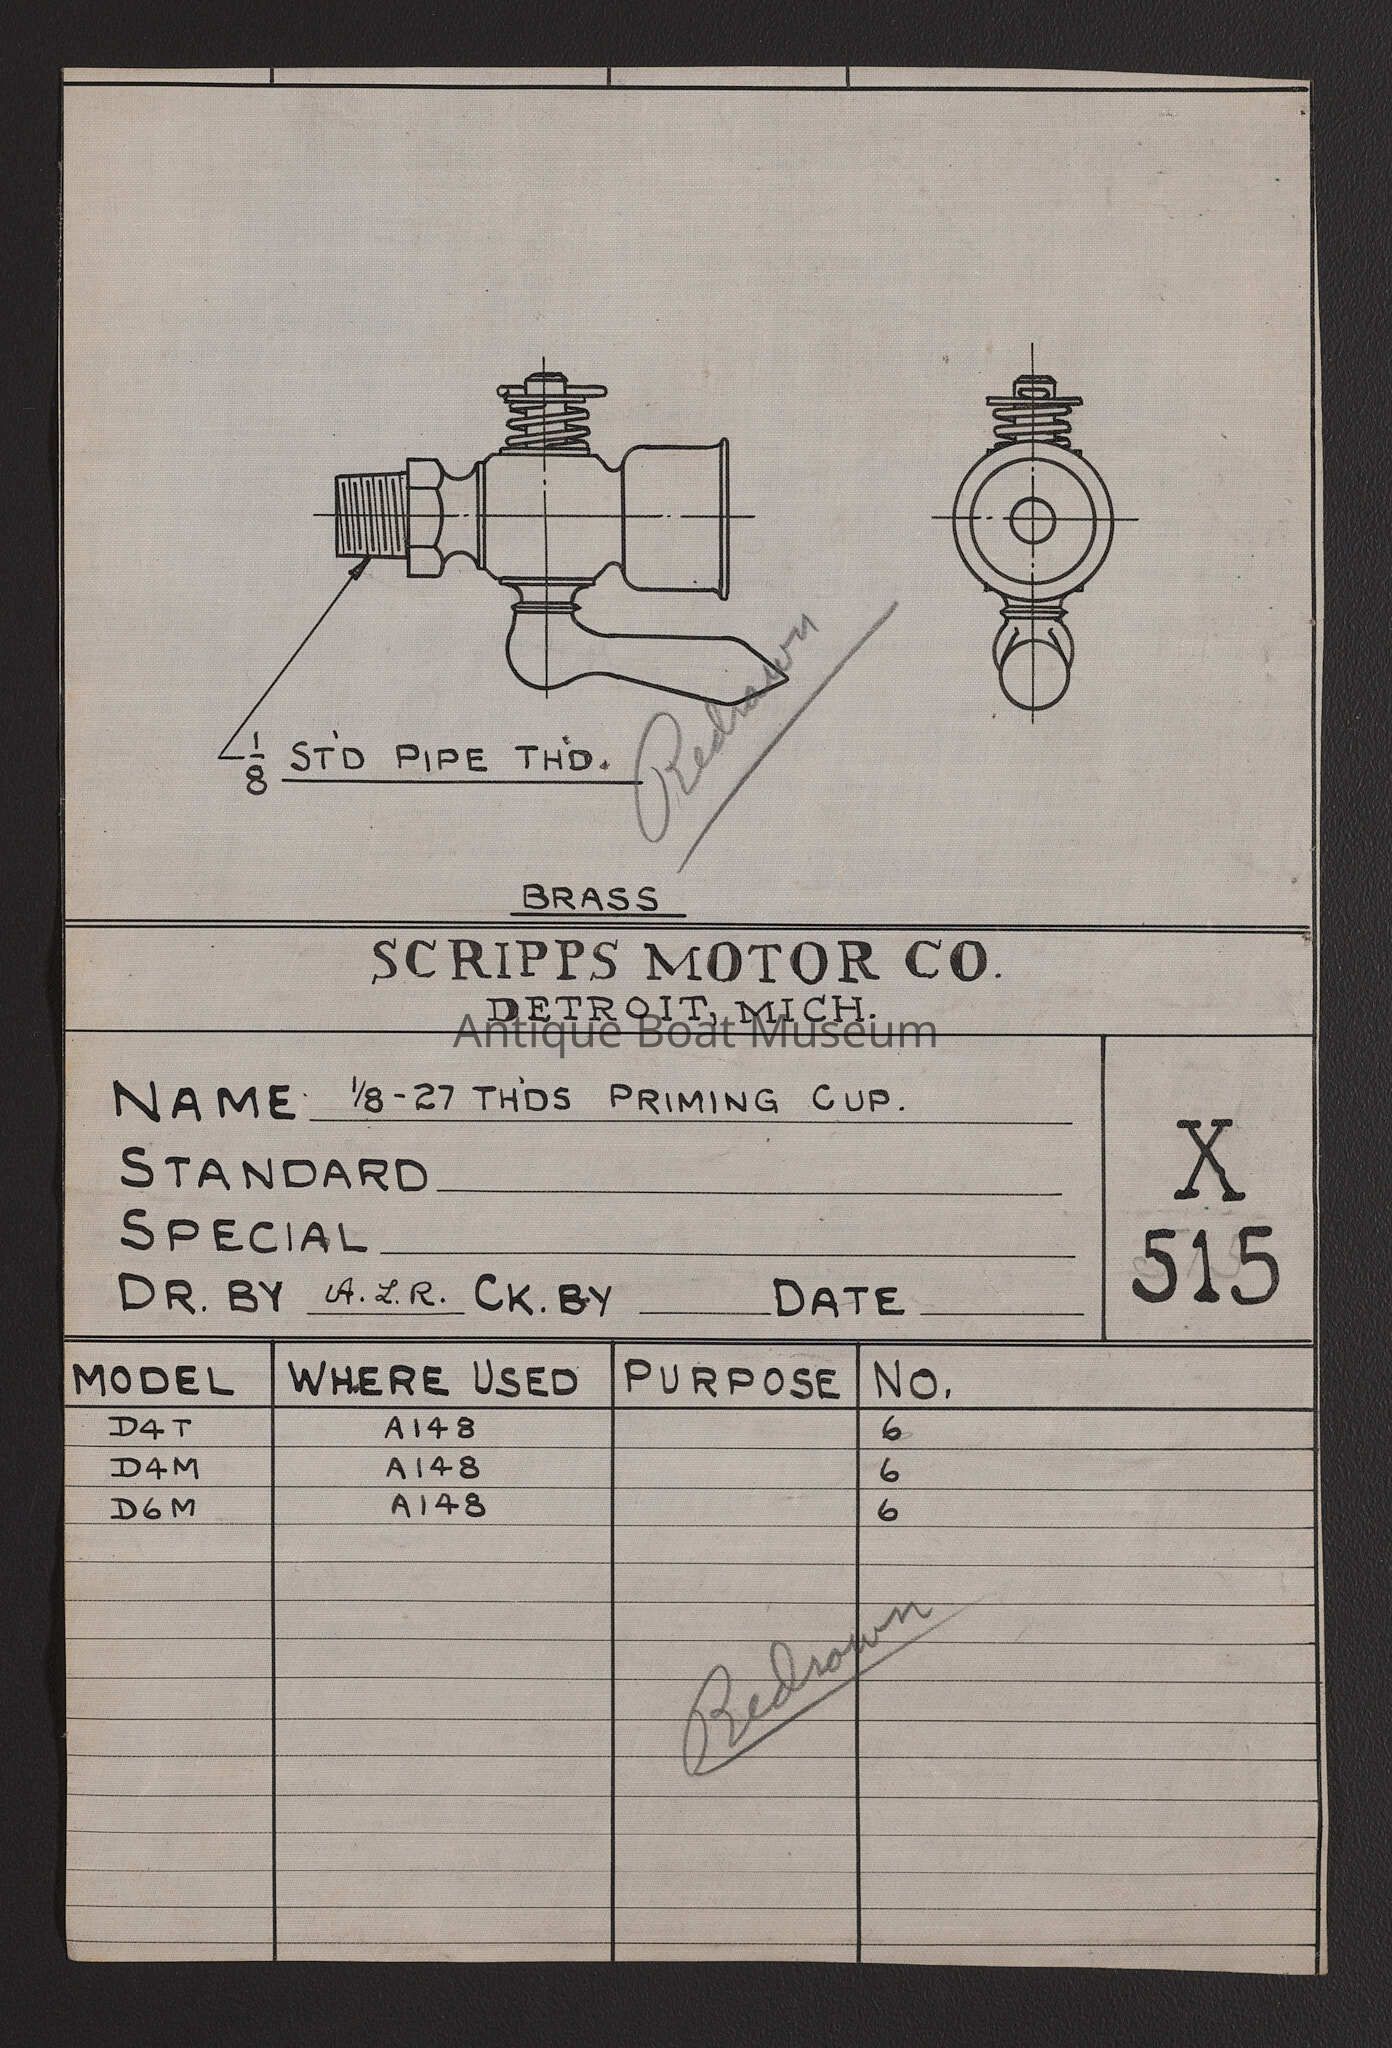 1/8 ST'D PIPE TH'D.
Redrawn
BRASS
SCRIPPS MOTOR CO.
DETROIT, MICH.
Antique Boat Museum
NAME 1/8-27 TH'DS PRIMING CUP.
STANDARD
SPECIAL
DR. BY A.L.R. CK. BY DATE
X
515
MODEL WHERE USED PURPOSE NO.
D4T A148 6
D4M A148 6
D6M A148 6
Redrawn